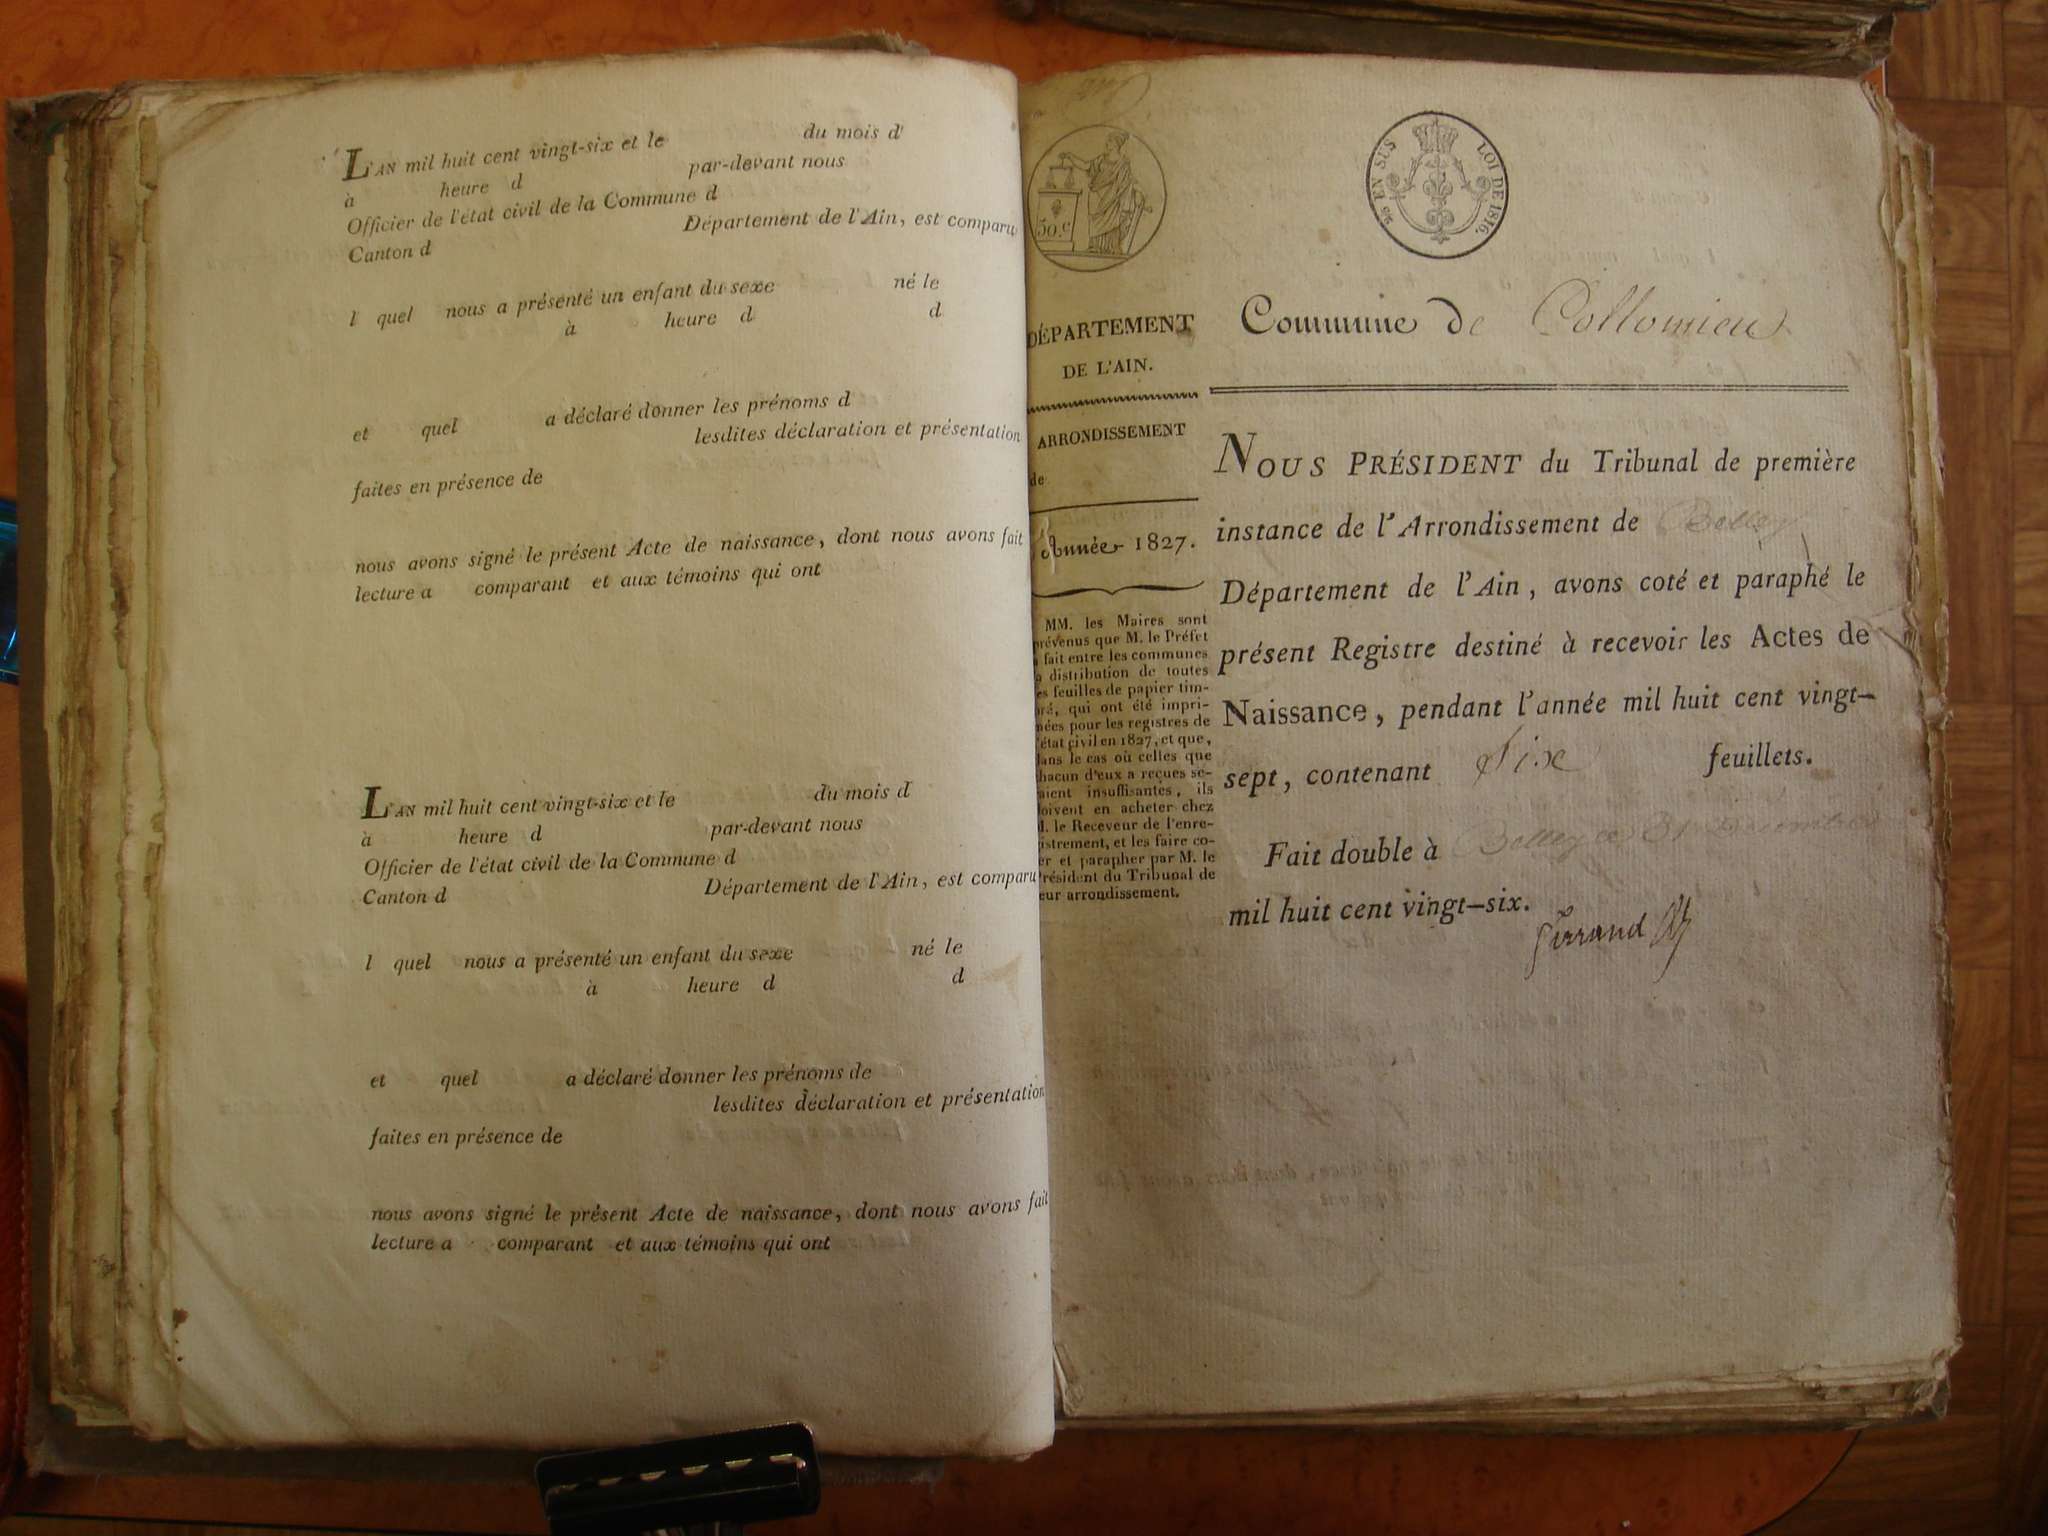 L'AN mil huit cent vingt-six et le du mois d
à heure d par-devant nous
Officier de l'état civil de la Commune d
Canton d Département de l'Ain, est comparu
l quel nous a présenté un enfant du sexe né le
à heure d d
et quel a déclaré donner les prénoms d
lesdites déclaration et présentation
faites en présence de
nous avons signé le présent Acte de naissance, dont nous avons fait
lecture a comparant et aux témoins qui ont
L'AN mil huit cent vingt-six et le du mois d
à heure d par-devant nous
Officier de l'état civil de la Commune d
Canton d Département de l'Ain, est comparu
l quel nous a présenté un enfant du sexe né le
à heure d d
et quel a déclaré donner les prénoms de
lesdites déclaration et présentation
faites en présence de
nous avons signé le présent Acte de naissance, dont nous avons fait
lecture a comparant et aux témoins qui ont
50.c
EN SUS LOI DE 1816.
DÉPARTEMENT
DE L'AIN.
ARRONDISSEMENT
de
Année 1827.
MM. les Maires sont
prévenus que M. le Préfet
a fait entre les communes
la distribution de toutes
les feuilles de papier tim-
bré, qui ont été impri-
mées pour les registres de
l'état civil en 1827, et que,
dans le cas où celles que
chacun d'eux a reçues se-
raient insuffisantes, ils
doivent en acheter chez
M. le Receveur de l'enre-
gistrement, et les faire co-
ter et parapher par M. le
Président du Tribunal de
leur arrondissement.
Commune de Collomieu
NOUS PRÉSIDENT du Tribunal de première
instance de l'Arrondissement de Belley
Département de l'Ain, avons coté et paraphé le
présent Registre destiné à recevoir les Actes de
Naissance, pendant l'année mil huit cent vingt-
sept, contenant Six feuillets.
Fait double à Belley ce 31 Décembre
mil huit cent vingt-six.